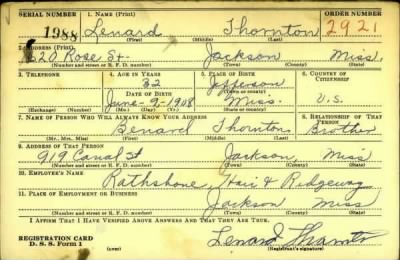 SERIAL NUMBER 1. NAME (Print) ORDER NUMBER
1988 Lenard Thornton 2921
(First) (Middle) (Last)
2. ADDRESS (Print)
620 Rose St. Jackson Miss.
(Number and street or R. F. D. number) (Town) (County) (State)
3. TELEPHONE 4. AGE IN YEARS 5. PLACE OF BIRTH 6. COUNTRY OF CITIZENSHIP
32 Jefferson
DATE OF BIRTH (Town or county)
June-9-1908 Miss. U.S.
(Exchange) (Number) (Mo.) (Day) (Yr.) (State or country)
7. NAME OF PERSON WHO WILL ALWAYS KNOW YOUR ADDRESS 8. RELATIONSHIP OF THAT PERSON
Benard Thornton Brother
(Mr., Mrs., Miss) (First) (Middle) (Last)
9. ADDRESS OF THAT PERSON
919 Canal St Jackson, Miss
(Number and street or R. F. D. number) (Town) (County) (State)
10. EMPLOYER'S NAME
Rathsbone, Hair & Ridgeway
11. PLACE OF EMPLOYMENT OR BUSINESS
Jackson Miss
(Number and street or R. F. D. number) (Town) (County) (State)
I AFFIRM THAT I HAVE VERIFIED ABOVE ANSWERS AND THAT THEY ARE TRUE.
REGISTRATION CARD
D. S. S. Form 1 (over) Lenard Thornton
(Registrant's signature)